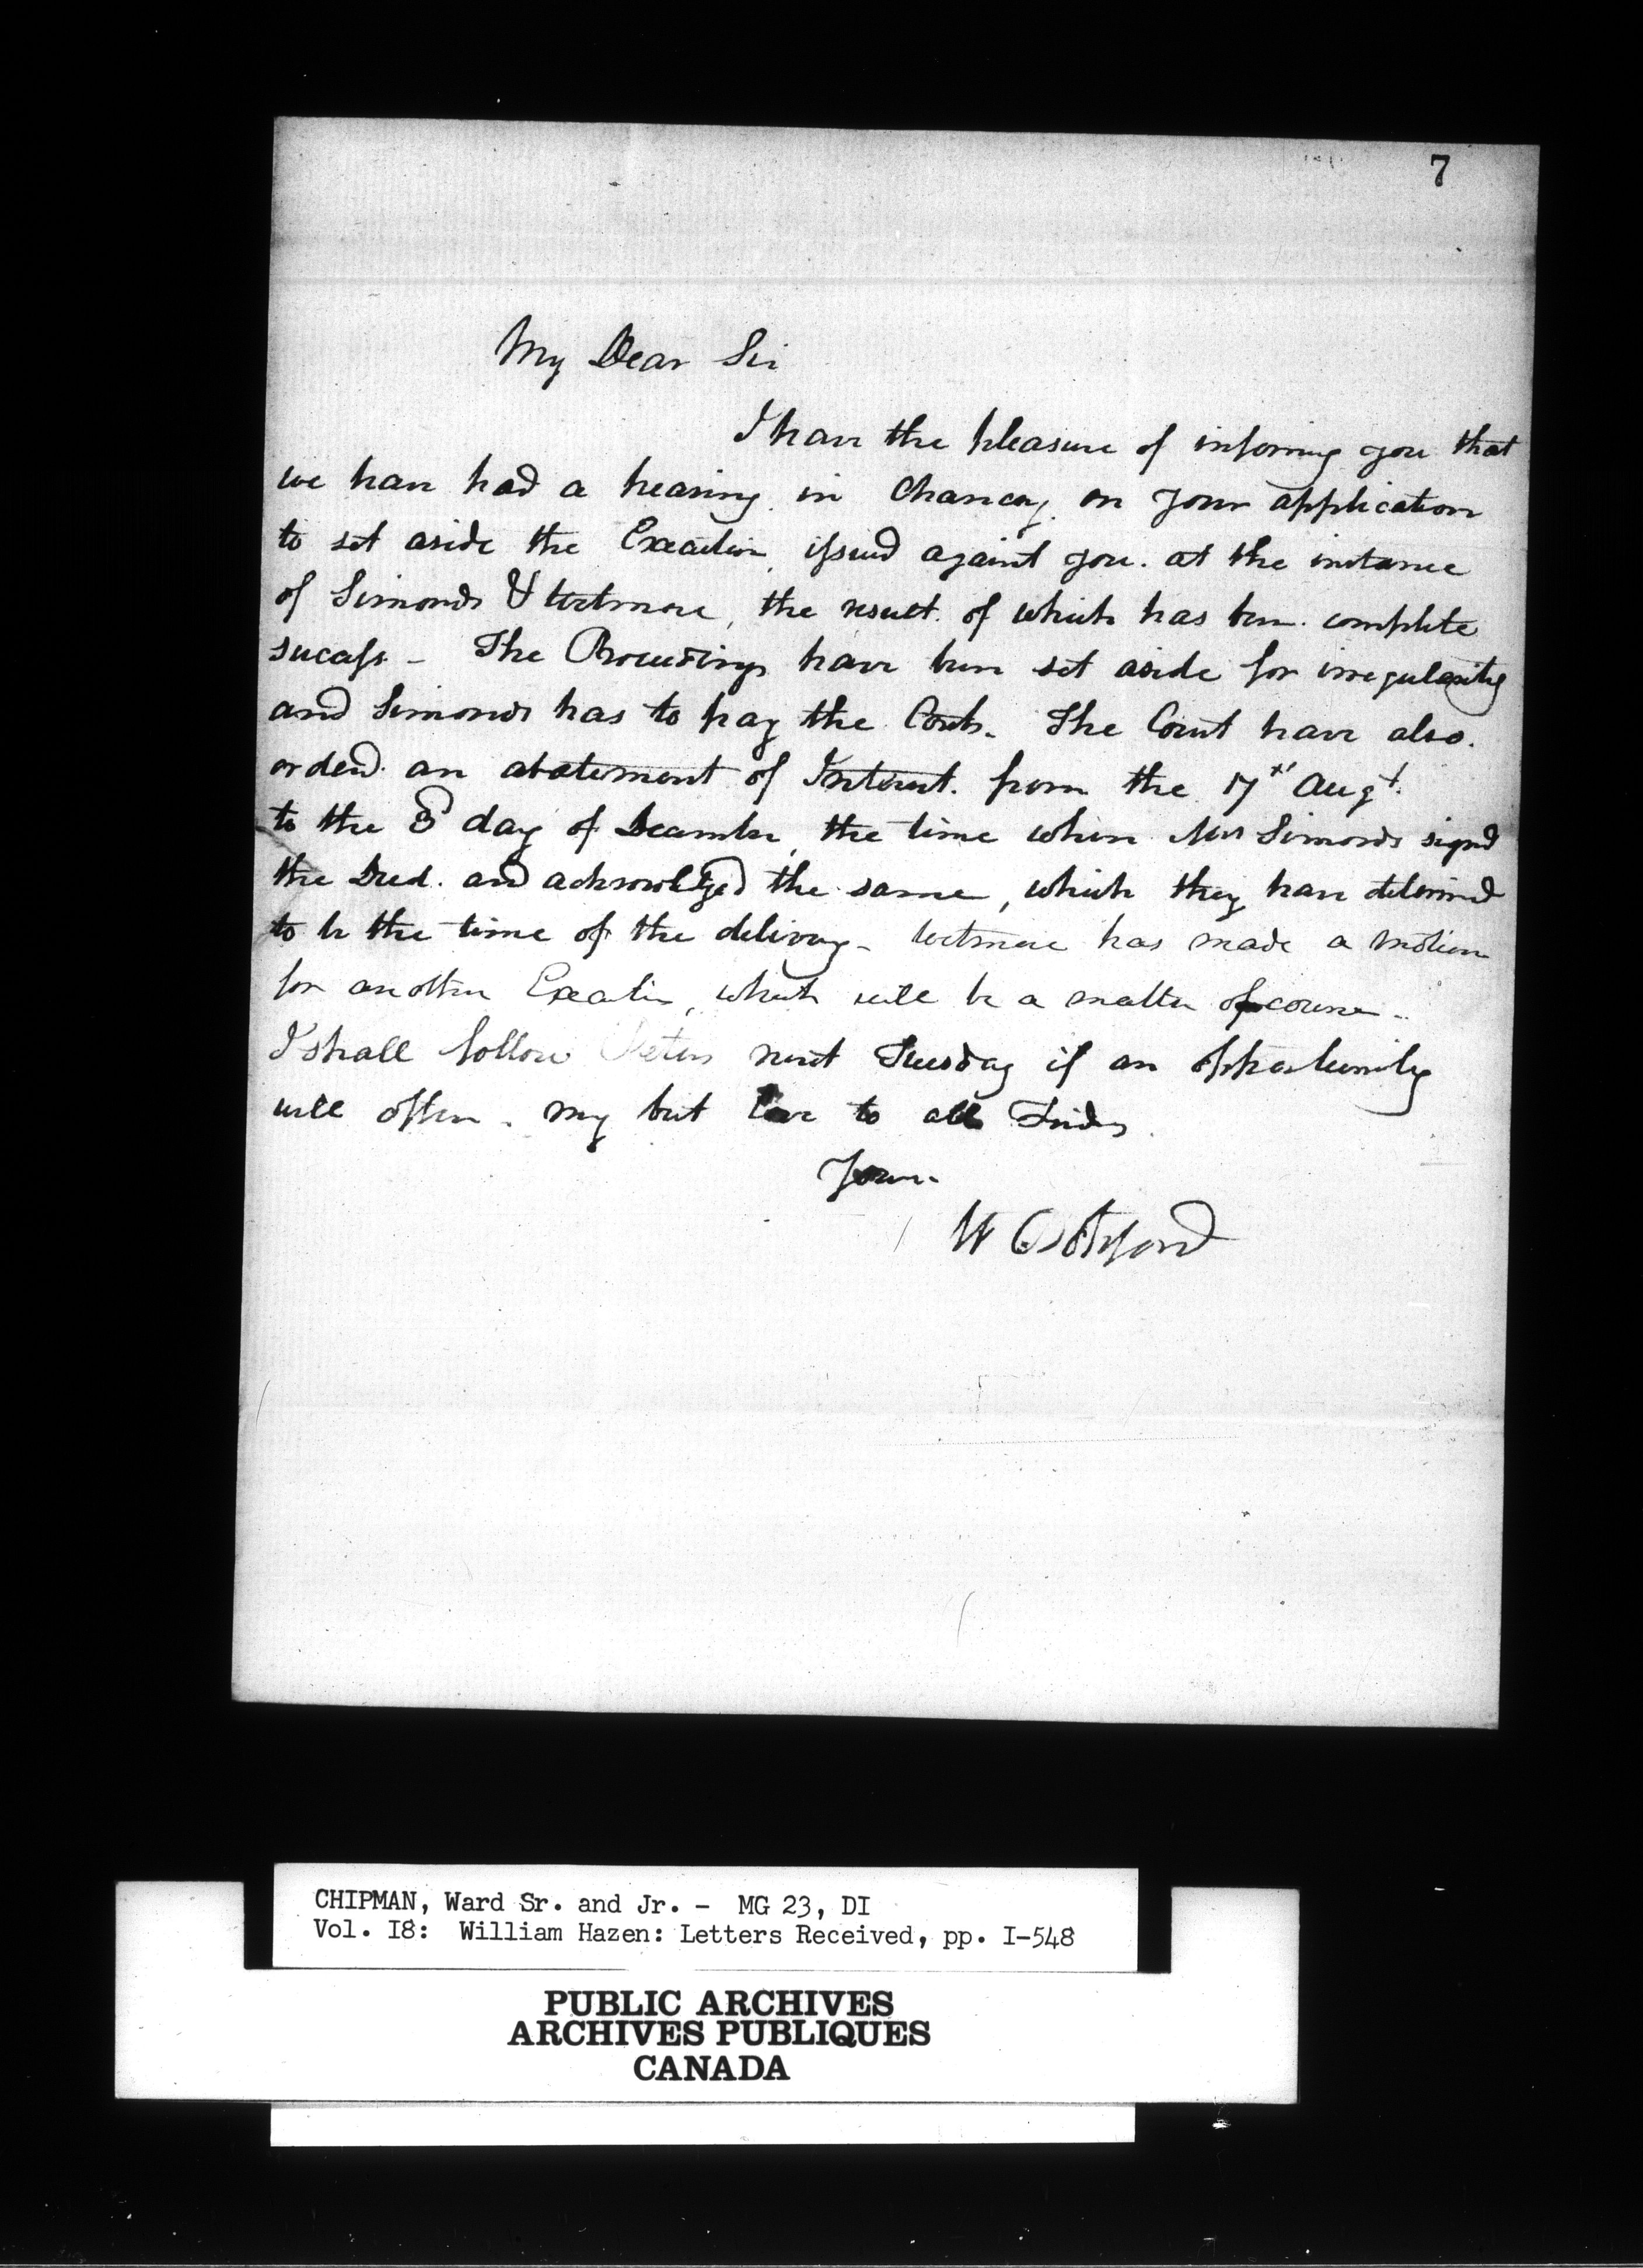 7
My Dear Sir
I have the pleasure of informing you that
we have had a hearing in Chancery on your application
to set aside the Execution issued against you at the instance
of Simonds & Wetmore, the result of which has been complete
success - The Proceedings have been set aside for irregularity
and Simonds has to pay the Costs. The Court have also
ordered an abatement of Interest from the 17th Augt.
to the 3d day of December, the time when Mrs Simonds signed
the Deed and acknowledged the same, which they have determined
to be the time of the delivery - Wetmore has made a motion
for another Execution, which will be a matter of course -
I shall follow Peters next Tuesday if an opportunity
will offer. My best love to all Friends
Yours
W Botsford
CHIPMAN, Ward Sr. and Jr. - MG 23, DI
Vol. I8: William Hazen: Letters Received, pp. I-548
PUBLIC ARCHIVES
ARCHIVES PUBLIQUES
CANADA